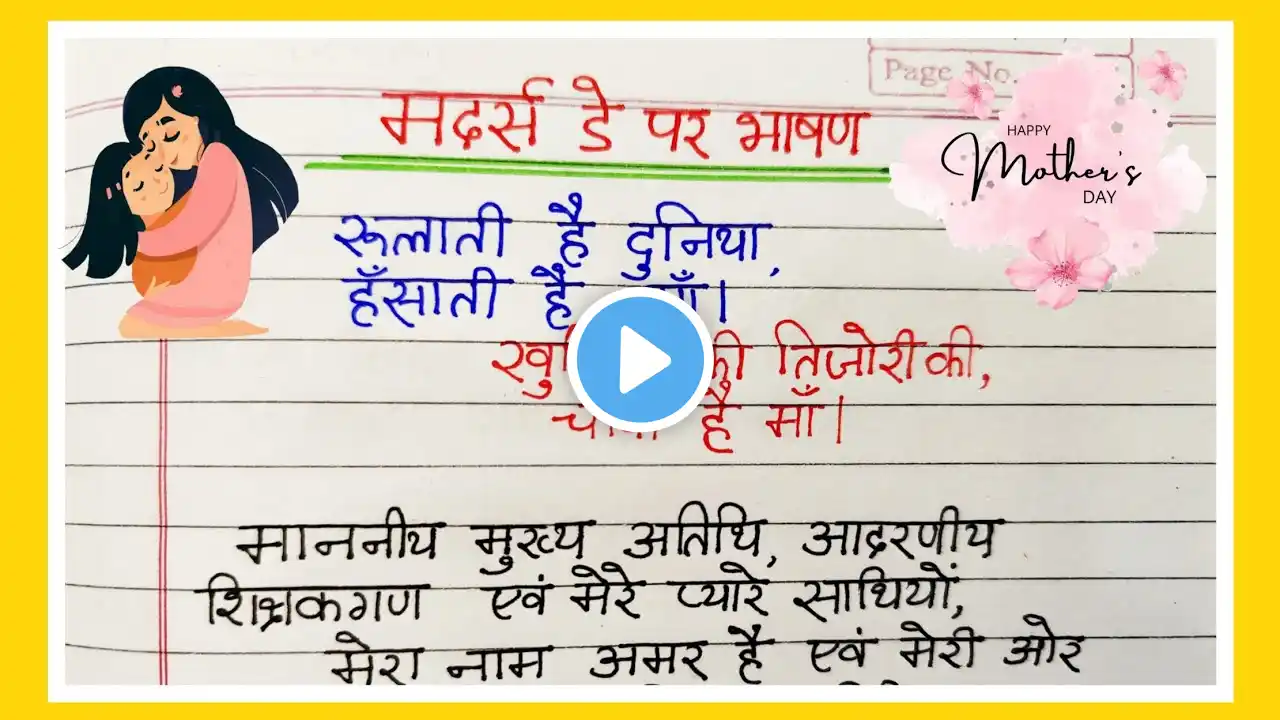 Page No.
मदर्स डे पर भाषण
HAPPY
Mother's
DAY
रूलाती है दुनिया,
हँसाती है माँ।
की तिजोरी की,
है माँ।
माननीय मुख्य अतिथि, आदरणीय
शिक्षकगण एवं मेरे प्यारे साथियों,
मेरा नाम अमर है एवं मेरी ओर